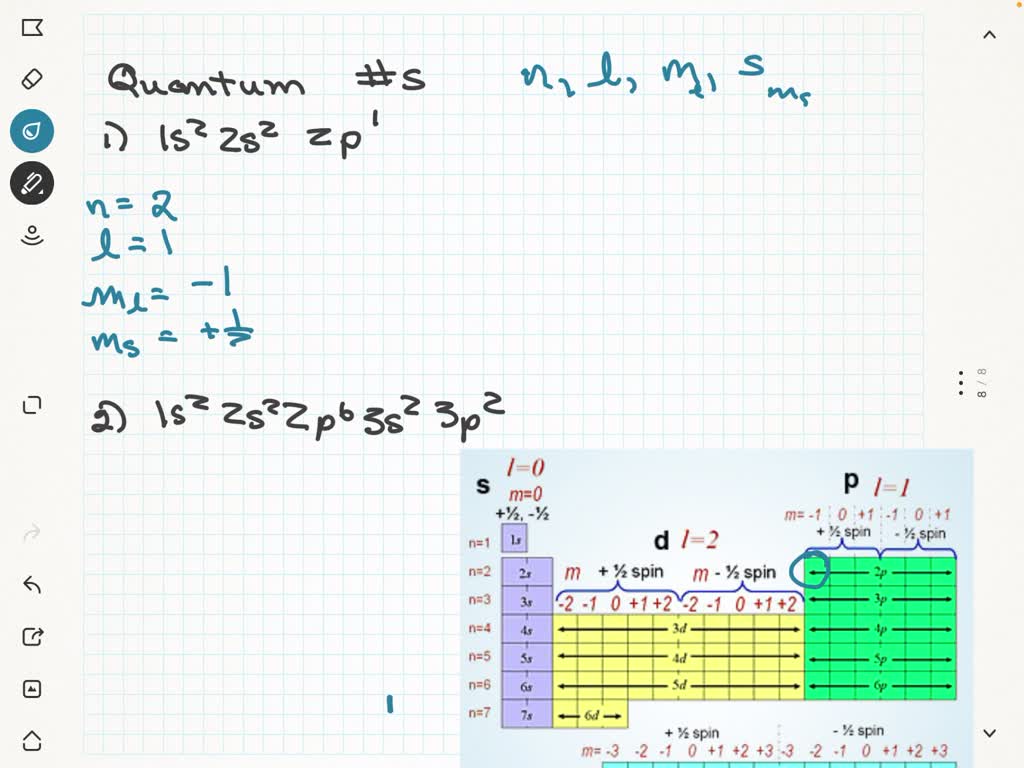 Quantum #s n, l, ml, s ms
1) 1s² 2s² 2p¹
n = 2
l = 1
ml = -1
ms = +1/2
2) 1s² 2s² 2p⁶ 3s² 3p²
8 / 8
s l=0
m=0
+½, -½
p l=1
m= -1 0 +1 -1 0 +1
+ ½ spin - ½ spin
d l=2
m + ½ spin m - ½ spin
-2 -1 0 +1 +2 -2 -1 0 +1 +2
n=1 1s
n=2 2s 2p
n=3 3s 3p
n=4 4s 3d 4p
n=5 5s 4d 5p
n=6 6s 5d 6p
n=7 7s 6d
+ ½ spin - ½ spin
m= -3 -2 -1 0 +1 +2 +3 -3 -2 -1 0 +1 +2 +3